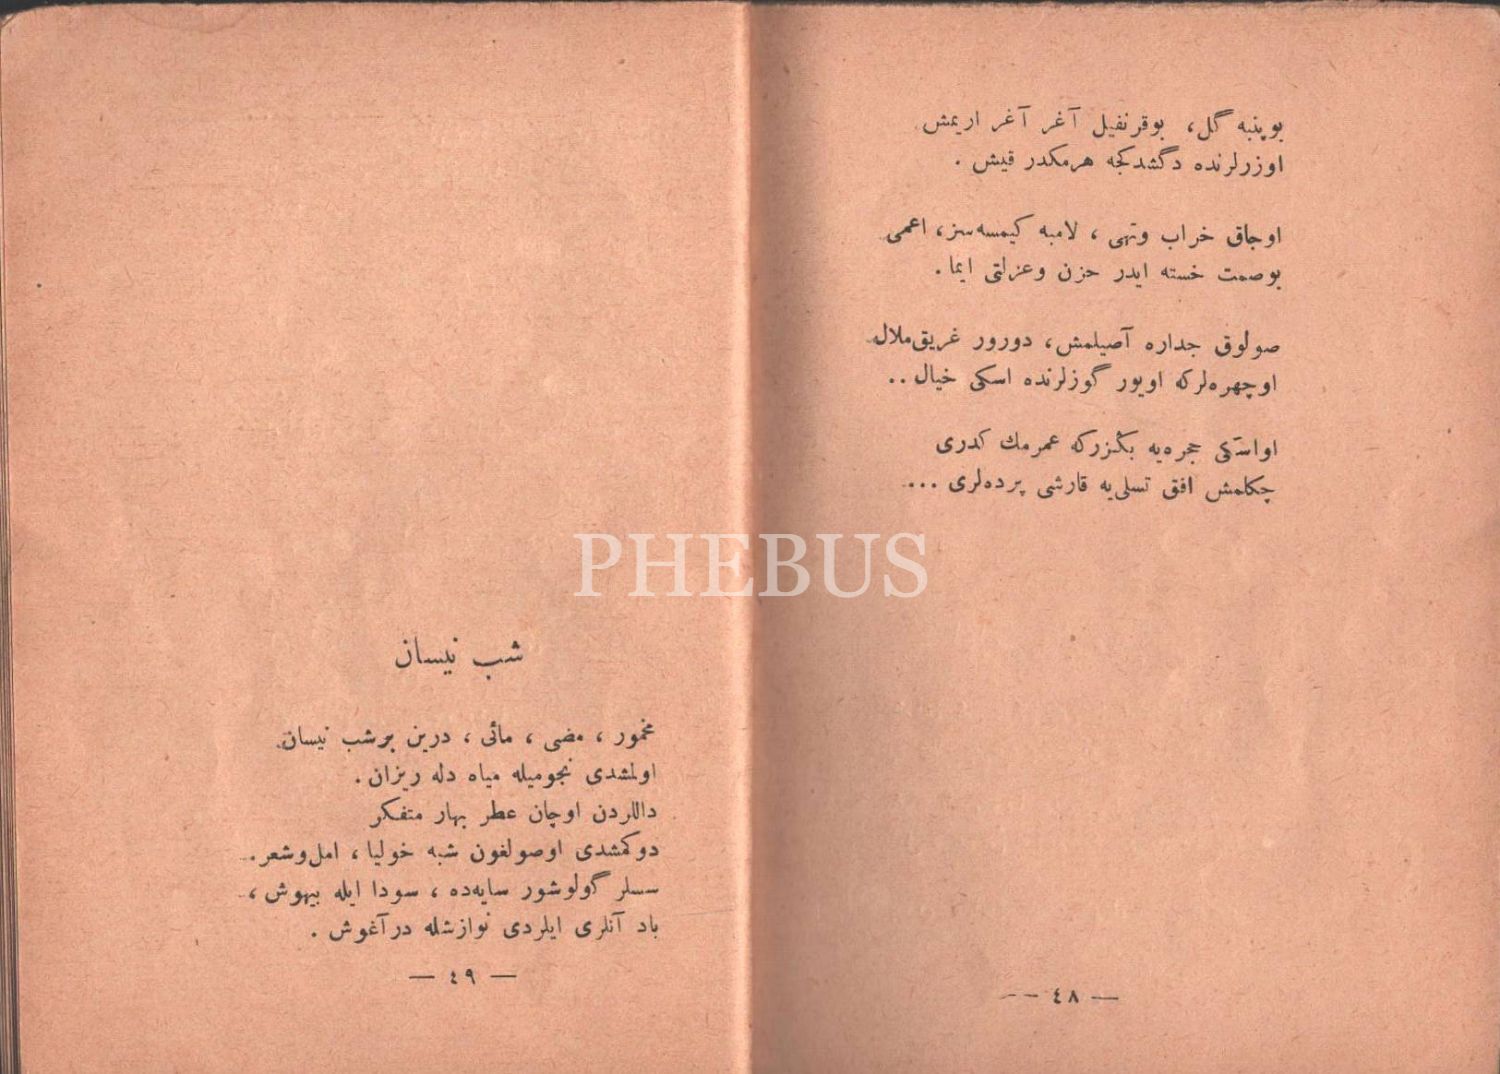 بو پنبه گل، بو قرنفیل آغر آغر اریمش
اوزرلرنده دگشدکجه هرمکدر قیش .
اوجاق خراب وتهی ، لامبه کیمسه‌سز، اعمی
بوصمت خسته ایدر حزن وعزلتی ایما .
صولوق جداره آصیلمش، دورور غریق‌ملال
اوچهره‌لرکه اویور گوزلرنده اسکی خیال ..
او اسکی حجره‌یه بکزرکه عمرمك کدری
چکلمش افق تسلی‌یه قارشی پرده‌لری ...
— ٤٨ —
شب نیسان
مخمور ، مضی ، مائی ، درین برشب نیسان
اولمشدی نجومیله میاه دله ریزان .
داللردن اوچان عطر بهار متفکر
دوکمشدی اوصولغون شبه خولیا ، امل‌وشعر .
سسلر گولوشور سایه‌ده ، سودا ایله بیهوش ،
باد آنلری ایلردی نوازشله درآغوش .
— ٤٩ —
PHEBUS